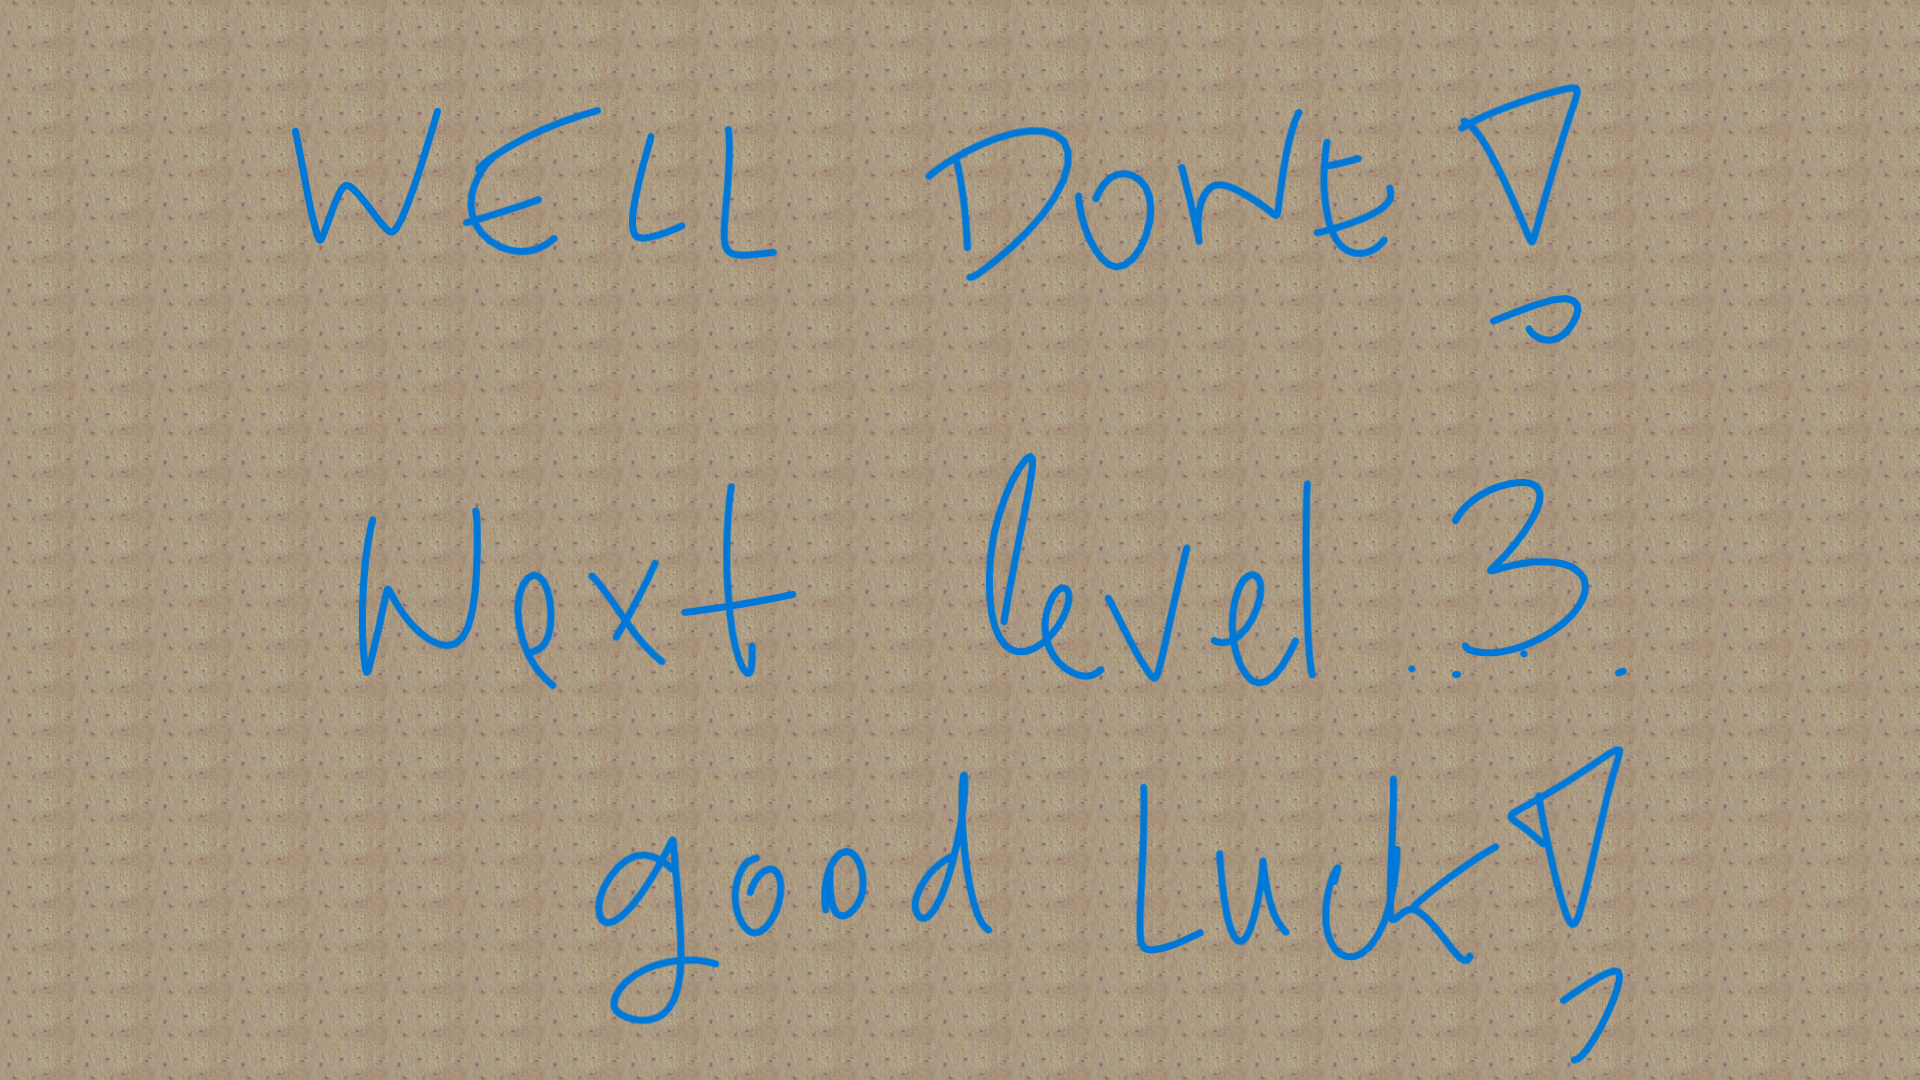 WELL DONE!
Next level 3...
good Luck!